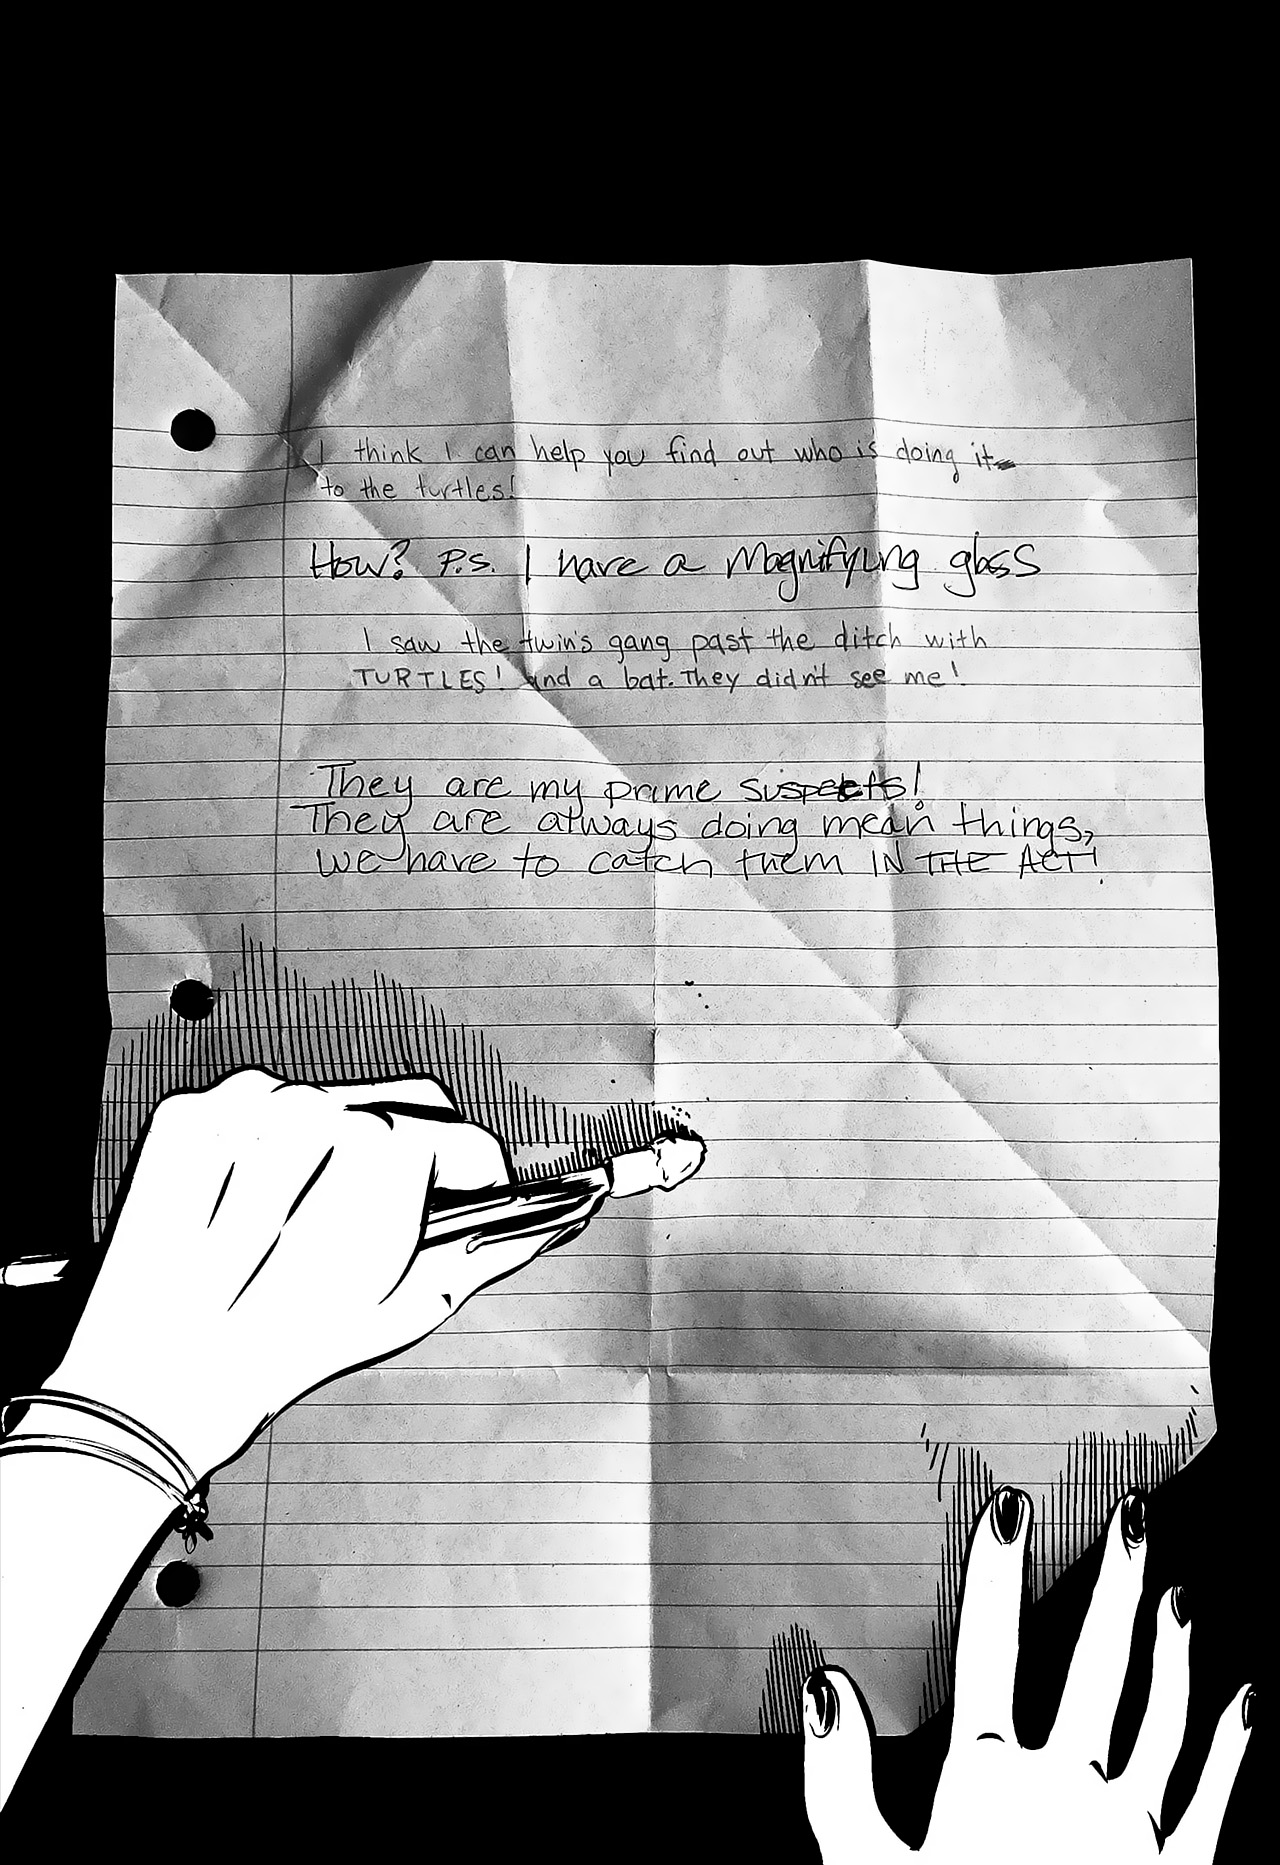 I think I can help you find out who is doing it
to the turtles!
How? P.S. I have a Magnifying glass
I saw the twin's gang past the ditch with
TURTLES! and a bat. They didn't see me!
They are my prime suspects!
They are always doing mean things,
we have to catch them IN THE ACT!